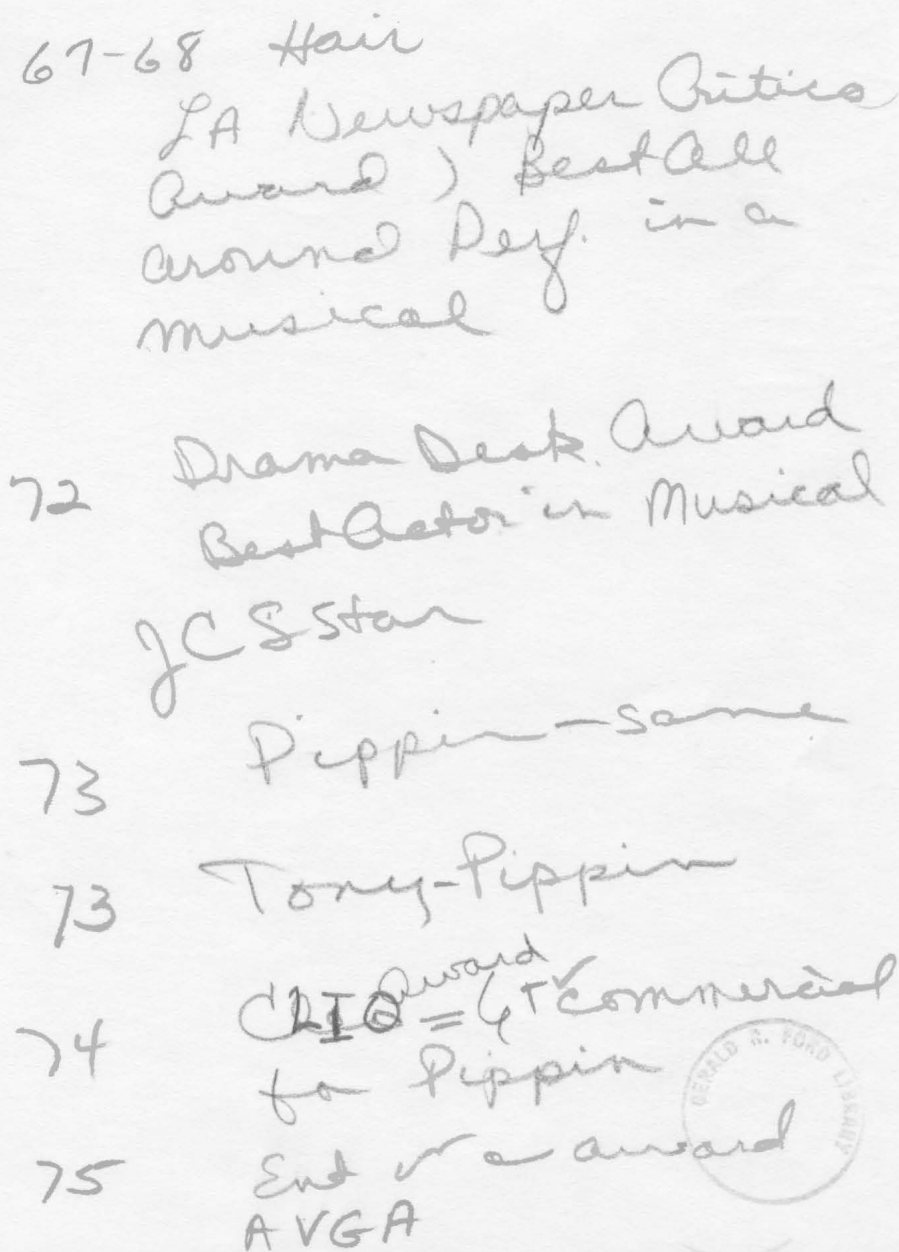 67-68 Hair
LA Newspaper Critics
Award ) Best All
around Perf. in a
musical
72 Drama Desk Award
Best Actor in Musical
JCSStar
73 Pippin - same
73 Tony - Pippin
74 CLIO Award = TV commercial
for Pippin
75 Ent award
AVGA
GERALD R. FORD LIBRARY